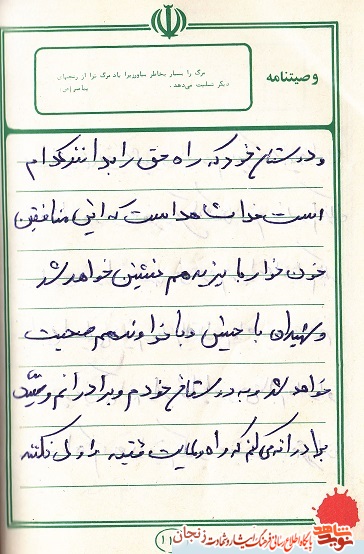 وصیتنامه
مرگ را بسیار بخاطر بیاورزیرا یاد مرگ ترا از رنجهای
دیگر تسلیت می‌دهد.
پیامبر (ص)
و دوستان خود که راه حق را بدانند کدام
است خدا شاهد است که این منافقین
خون خوار با یزید هم نشین خواهد شد
و شهیدان با حسین و با خداوند هم صحبت
خواهد شد و به دوستان خودم و برادرانم وصیت
برادرانه می کنم که راه ولایت فقیه را ول نکنند
(١١)
نوید شاهد
پایگاه اطلاع رسانی فرهنگ ایثار و شهادت زنجان